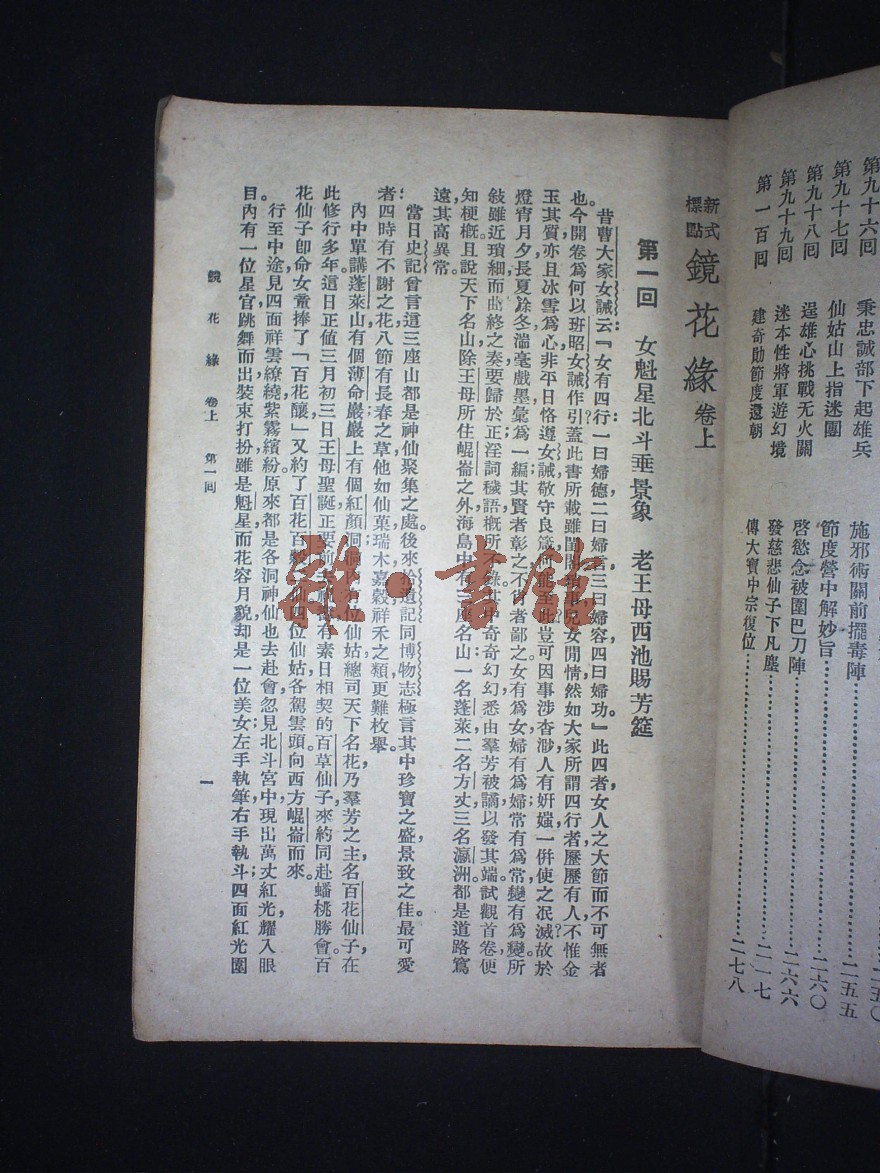 二五〇
第九十六回 秉忠誠部下起雄兵 施邪術關前擺毒陣……二五五
第九十七回 仙姑山上指迷團 節度營中解妙旨……二六〇
第九十八回 逞雄心挑戰无火關 啓慾念被圍巴刀陣……二六六
第九十九回 迷本性將軍遊幻境 發慈悲仙子下凡塵……二一七
第一百回 建奇助節度還朝 傳大寶中宗復位……二七八
新式標點 鏡花緣 卷上
第一回 女魁星北斗垂景象 老王母西池賜芳筵
昔曹大家女誡云:『女有四行:一曰婦德,二曰婦言,三曰婦容,四曰婦功。』此四者,女人之大節而不可無者
也。今開卷爲何以班昭女誡作引?蓋此書所載雖閨閣瑣事,兒女閒情,然如大家所謂四行者,歷歷有人,不惟金
玉其質,亦且冰雪爲心。非平日恪遵女誡,敬守良箴,何能至此?豈可因事涉杳渺,人有姸媸,一併使之泯滅?故於
燈宵月夕,長夏餘冬,濡毫戲墨,彙爲一編;其賢者彰之,不肖者鄙之;女有爲女,婦有爲婦;常有爲常,變有爲變。所
敍雖近瑣細,而曲終之奏,要歸於正,淫詞穢語,槪所錄。其中奇奇幻幻,悉由羣芳被謫,以發其端。試觀首卷,便
知梗槪。且說天下名山,除王母所住崐崙之外,海島中有三座名山:一名蓬萊,二名方丈,三名瀛洲。都是道路窵
遠,其高異常。
當日史記曾言這三座山都是神仙聚集之處。後來拾遺記同博物志極言其中珍寶之盛,景致之佳。最可愛
者:四時有不謝之花,八節有長春之草。他如仙菓、瑞木、嘉穀、祥禾之類,更難枚舉。
內中單講蓬萊山有個薄命巖,巖上有個紅顏洞,洞內有位仙姑,總司天下名花,乃羣芳之主,名百花仙子,在
此修行多年。這日正値三月初三日王母聖誕,正要前去,有素日相契的百草仙子來約同赴蟠桃勝會。百
花仙子卽命女童捧了「百花釀」;又約了百花百仙四位仙姑,各駕雲頭,向西方崐崙而來。
行至中途,見四面祥雲繚繞,紫霧繽紛,原來都是各洞神仙,也去赴會。忽見北斗宮中現出萬丈紅光,耀入眼
目,內有一位星官,跳舞而出。裝束打扮,雖是魁星,而花容月貌,卻是一位美女。左手執筆,右手執斗;四面紅光圍
鏡花緣 卷上 第一回
一